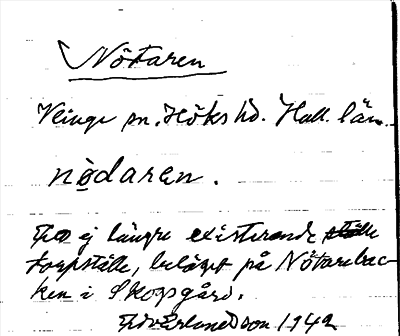 Nötaren
Veinge sn. Höks hd. Hall. län.
nödaren.
ej längre existerande
torpställe, beläget på Nötarebac-
ken i Skogsgård.
Erlandsson 1942